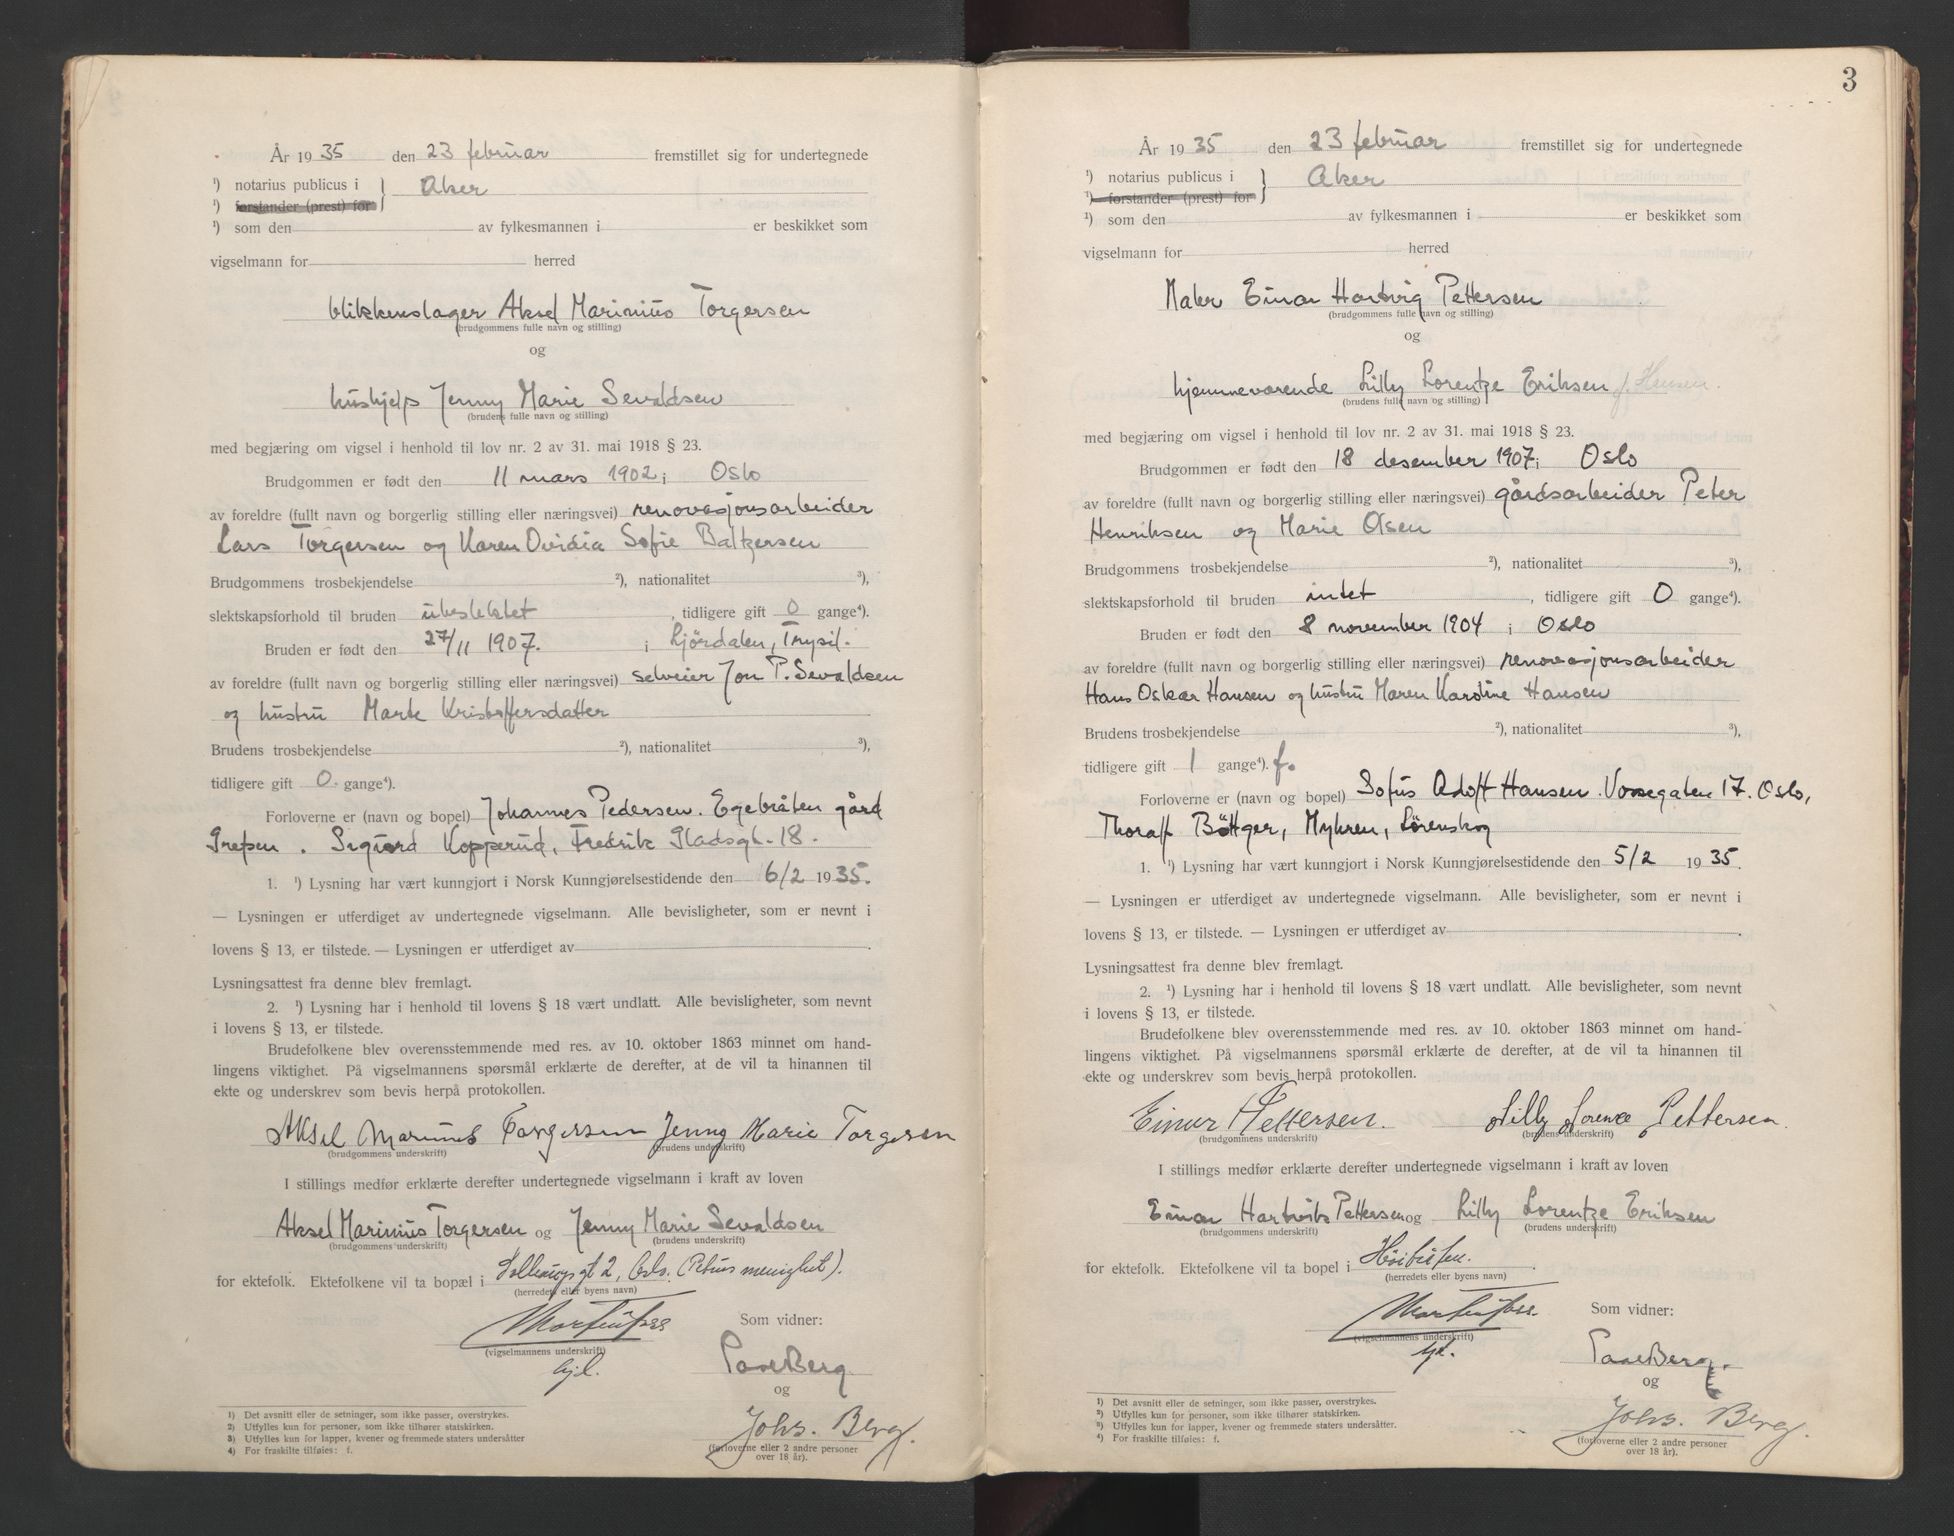 År 19 35 den 23 februar fremstillet sig for undertegnede
¹) notarius publicus i } Aker
¹) forstander (prest) for
¹) som den av fylkesmannen i er beskikket som
vigselmann for herred
blikkenslager Aksel Marinius Torgersen
(brudgommens fulle navn og stilling)
og
hushjelp Jenny Marie Sevaldsen
(brudens fulle navn og stilling)
med begjæring om vigsel i henhold til lov nr. 2 av 31. mai 1918 § 23.
Brudgommen er født den 11 mars 1902 i Oslo
av foreldre (fullt navn og borgerlig stilling eller næringsvei) renovasjonsarbeider
Lars Torgersen og Karen Ovidia Sofie Baltzersen
Brudgommens trosbekjendelse ²), nationalitet ³),
slektskapsforhold til bruden ubeslektet, tidligere gift 0 gange⁴).
Bruden er født den 27/11 1907. i Ljørdalen, Trysil.
av foreldre (fullt navn og borgerlig stilling eller næringsvei) selveier Jon P. Sevaldsen
og hustru Marte Kristoffersdatter
Brudens trosbekjendelse ²), nationalitet ³),
tidligere gift 0. gange⁴).
Forloverne er (navn og bopel) Johannes Pedersen. Egebråten gård
Grefsen. Sigurd Kopperud, Fredrik Gladsgt. 18.
1. ¹) Lysning har vært kunngjort i Norsk Kunngjørelsestidende den 6/2 1935.
— Lysningen er utferdiget av undertegnede vigselmann. Alle bevisligheter, som er nevnt i
lovens § 13, er tilstede. — Lysningen er utferdiget av
Lysningsattest fra denne blev fremlagt.
2. ¹) Lysning har i henhold til lovens § 18 vært undlatt. Alle bevisligheter, som nevnt
i lovens § 13, er tilstede.
Brudefolkene blev overensstemmende med res. av 10. oktober 1863 minnet om hand-
lingens viktighet. På vigselmannens spørsmål erklærte de derefter, at de vil ta hinannen til
ekte og underskrev som bevis herpå protokollen.
Aksel Marinius Torgersen Jenny Marie Torgersen
(brudgommens underskrift) (brudens underskrift)
I stillings medfør erklærte derefter undertegnede vigselmann i kraft av loven
Aksel Marinius Torgersen og Jenny Marie Sevaldsen
(brudgommens underskrift) (brudens underskrift)
for ektefolk. Ektefolkene vil ta bopæl i gt 2, Oslo. (Petrus menighet).
(herredets eller byens navn)
Som vidner:
(vigselmannens underskrift)
Berg
og
Johs. Berg.
(forloverne eller 2 andre personer
over 18 år).
1) Det avsnitt eller de setninger, som ikke passer, overstrykes.
2) Utfylles kun for personer, som ikke tilhører statskirken.
3) Utfylles kun for lapper, kvener og fremmede staters undersåtter
4) For fraskilte tilføies: f.
3
År 19 35 den 23 februar fremstillet sig for undertegnede
¹) notarius publicus i } Aker
¹) forstander (prest) for
¹) som den av fylkesmannen i er beskikket som
vigselmann for herred
Maler Einar Hartvig Pettersen
(brudgommens fulle navn og stilling)
og
hjemmeværende Lilly Lorentze Eriksen f. Hansen.
(brudens fulle navn og stilling)
med begjæring om vigsel i henhold til lov nr. 2 av 31. mai 1918 § 23.
Brudgommen er født den 18 desember 1907 i Oslo
av foreldre (fullt navn og borgerlig stilling eller næringsvei) gårdsarbeider Peter
Henriksen og Marie Olsen
Brudgommens trosbekjendelse ²), nationalitet ³),
slektskapsforhold til bruden intet, tidligere gift 0 gange⁴).
Bruden er født den 8 november 1904 i Oslo
av foreldre (fullt navn og borgerlig stilling eller næringsvei) renovasjonsarbeider
Hans Oskar Hansen og hustru Maren Karoline Hansen
Brudens trosbekjendelse ²), nationalitet ³),
tidligere gift 1 gange⁴). f.
Forloverne er (navn og bopel) Sofus Adolf Hansen. Vossegaten 17. Oslo,
Thoralf Bøttger, Myhren, Lørenskog
1. ¹) Lysning har vært kunngjort i Norsk Kunngjørelsestidende den 5/2 1935.
— Lysningen er utferdiget av undertegnede vigselmann. Alle bevisligheter, som er nevnt i
lovens § 13, er tilstede. — Lysningen er utferdiget av
Lysningsattest fra denne blev fremlagt.
2. ¹) Lysning har i henhold til lovens § 18 vært undlatt. Alle bevisligheter, som nevnt
i lovens § 13, er tilstede.
Brudefolkene blev overensstemmende med res. av 10. oktober 1863 minnet om hand-
lingens viktighet. På vigselmannens spørsmål erklærte de derefter, at de vil ta hinannen til
ekte og underskrev som bevis herpå protokollen.
Einar Pettersen. Lilly Lorentze Pettersen.
(brudgommens underskrift) (brudens underskrift)
I stillings medfør erklærte derefter undertegnede vigselmann i kraft av loven
Einar Hartvig Pettersen og Lilly Lorentze Eriksen
(brudgommens underskrift) (brudens underskrift)
for ektefolk. Ektefolkene vil ta bopel i
(herredets eller byens navn)
Som vidner:
(vigselmannens underskrift)
Berg.
og
Johs. Berg.
(forloverne eller 2 andre personer
over 18 år).
¹) Det avsnitt eller de setninger, som ikke passer, overstrykes.
²) Utfylles kun for personer, som ikke tilhører statskirken.
³) Utfylles kun for lapper, kvener og fremmede staters undersåtter.
⁴) For fraskilte tilføies: f.